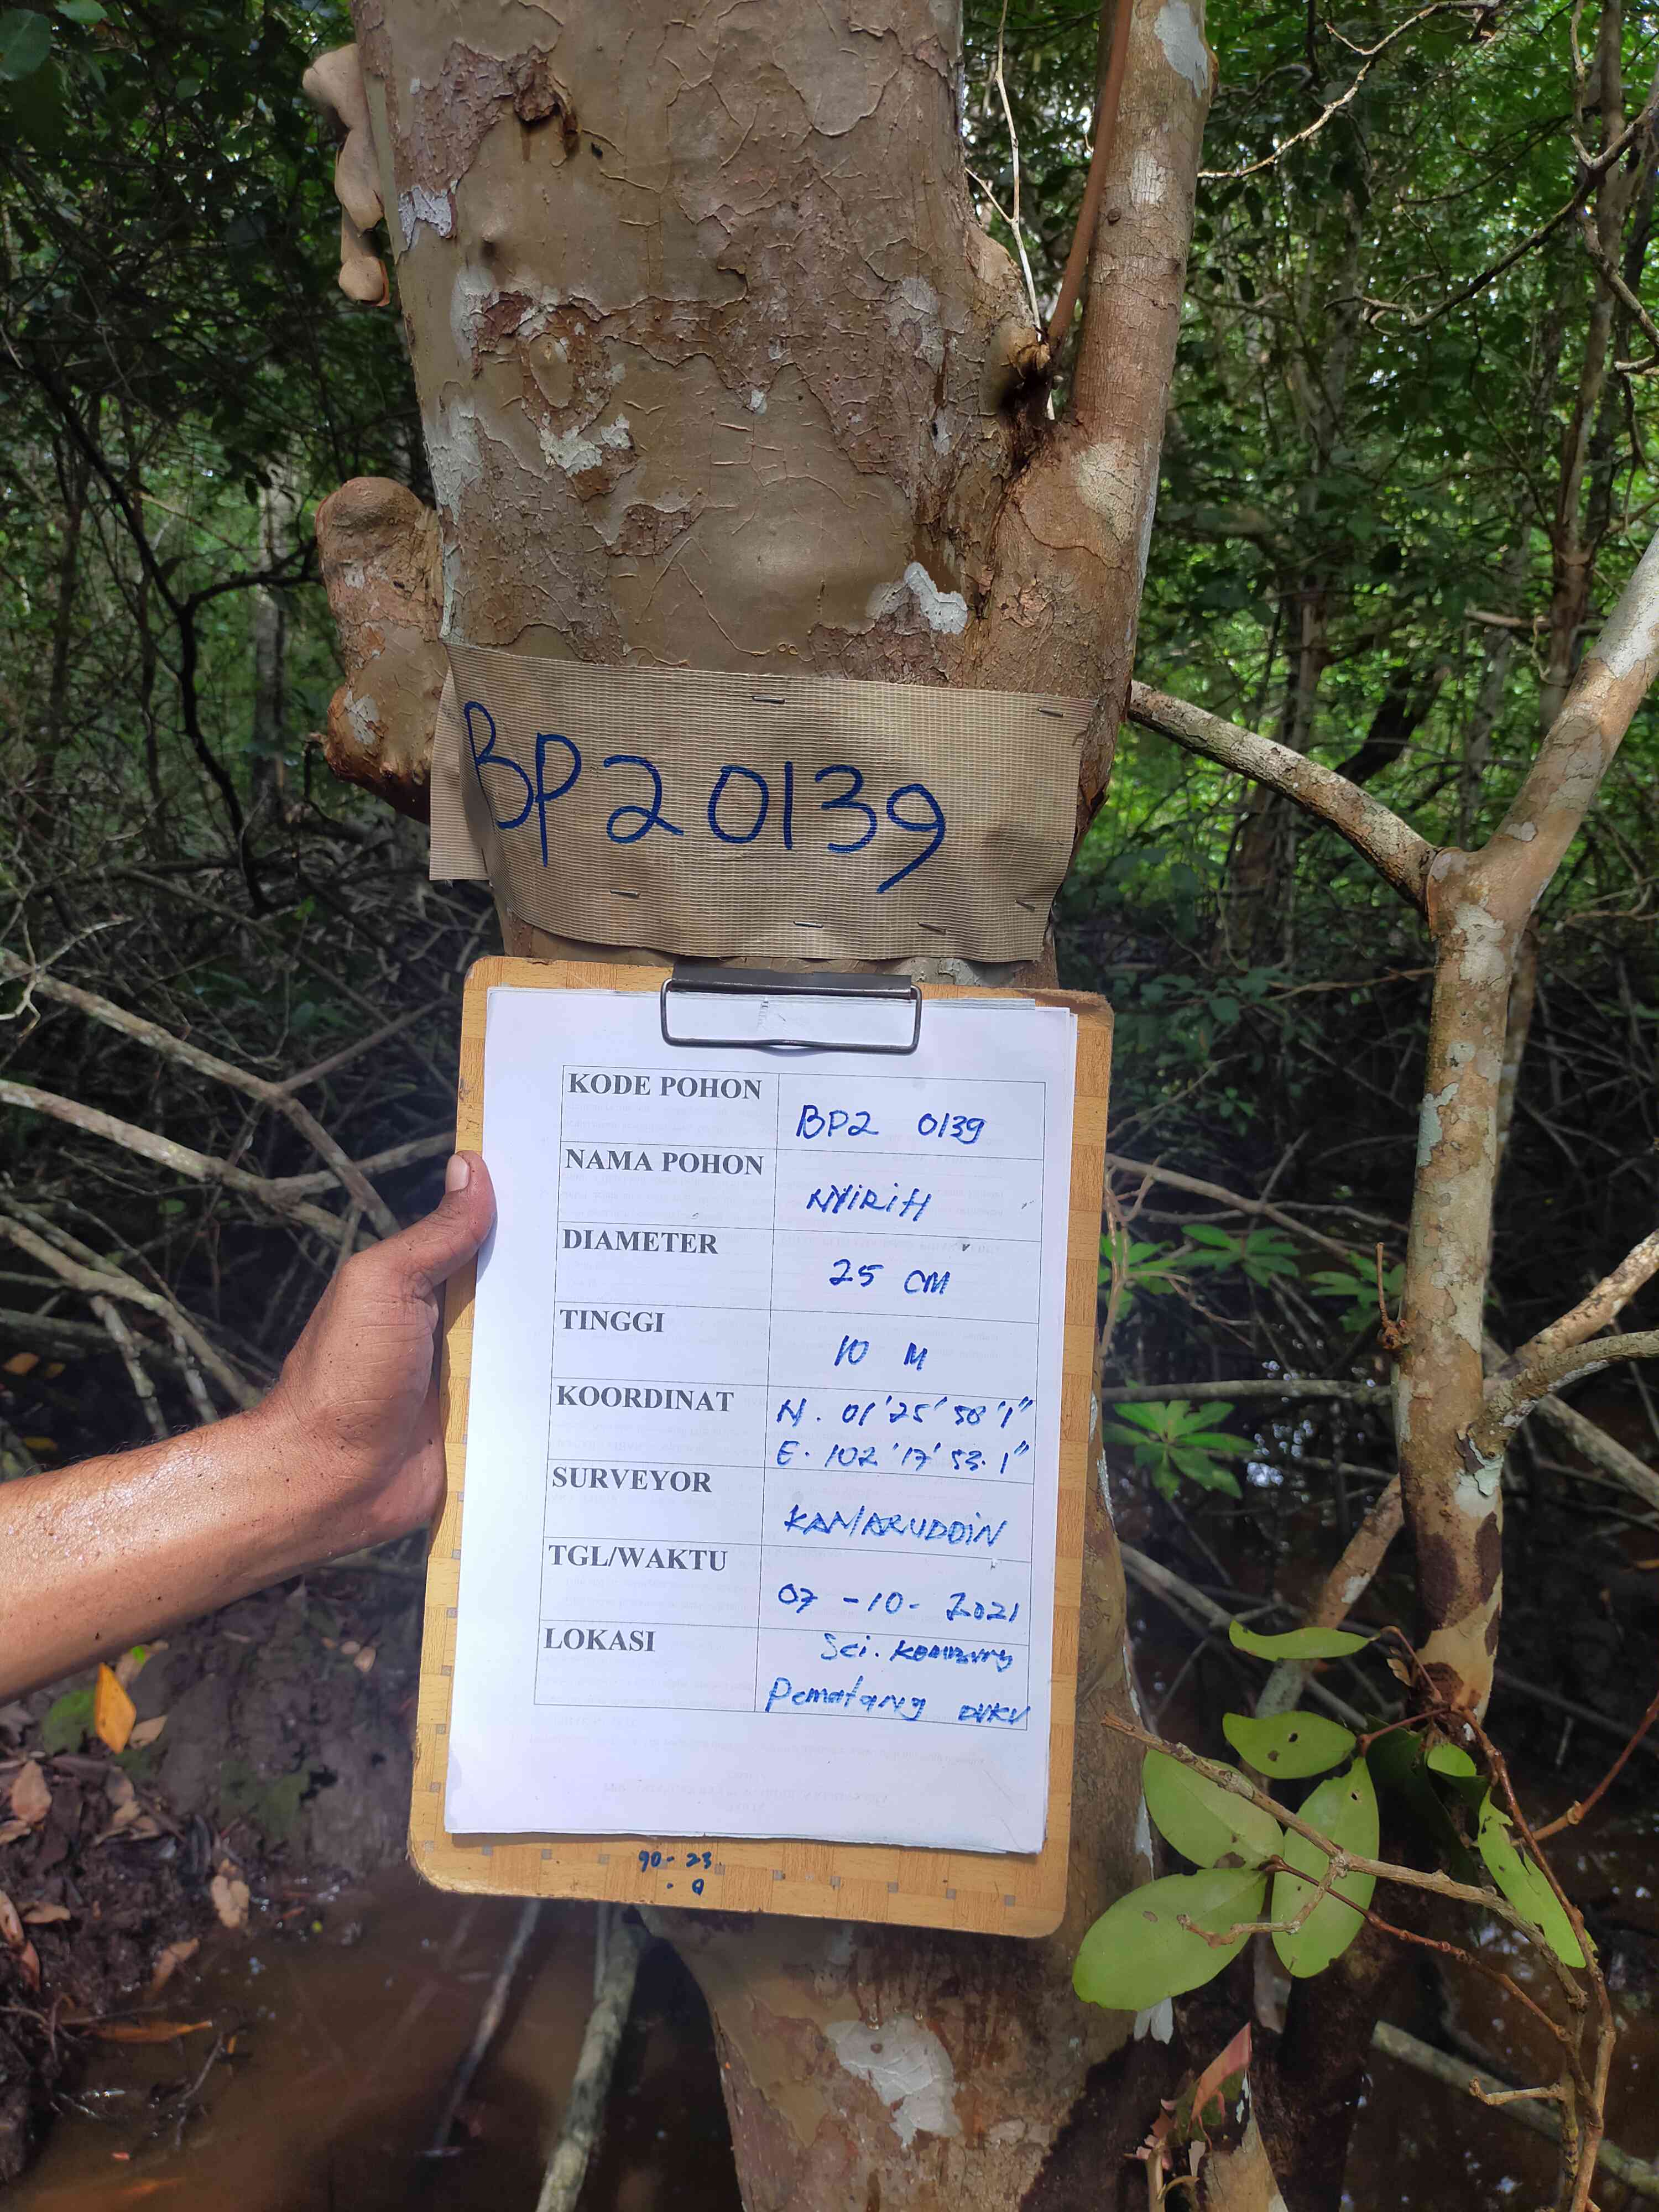 BP2 0139
KODE POHON BP2 0139
NAMA POHON NYIRIH
DIAMETER 25 CM
TINGGI 10 M
KOORDINAT N. 01'25'58'1"
E. 102'17'53.1"
SURVEYOR KAMARUDDIN
TGL/WAKTU 07-10-2021
LOKASI Sei. Kembung
Pematang DUKU
90-23